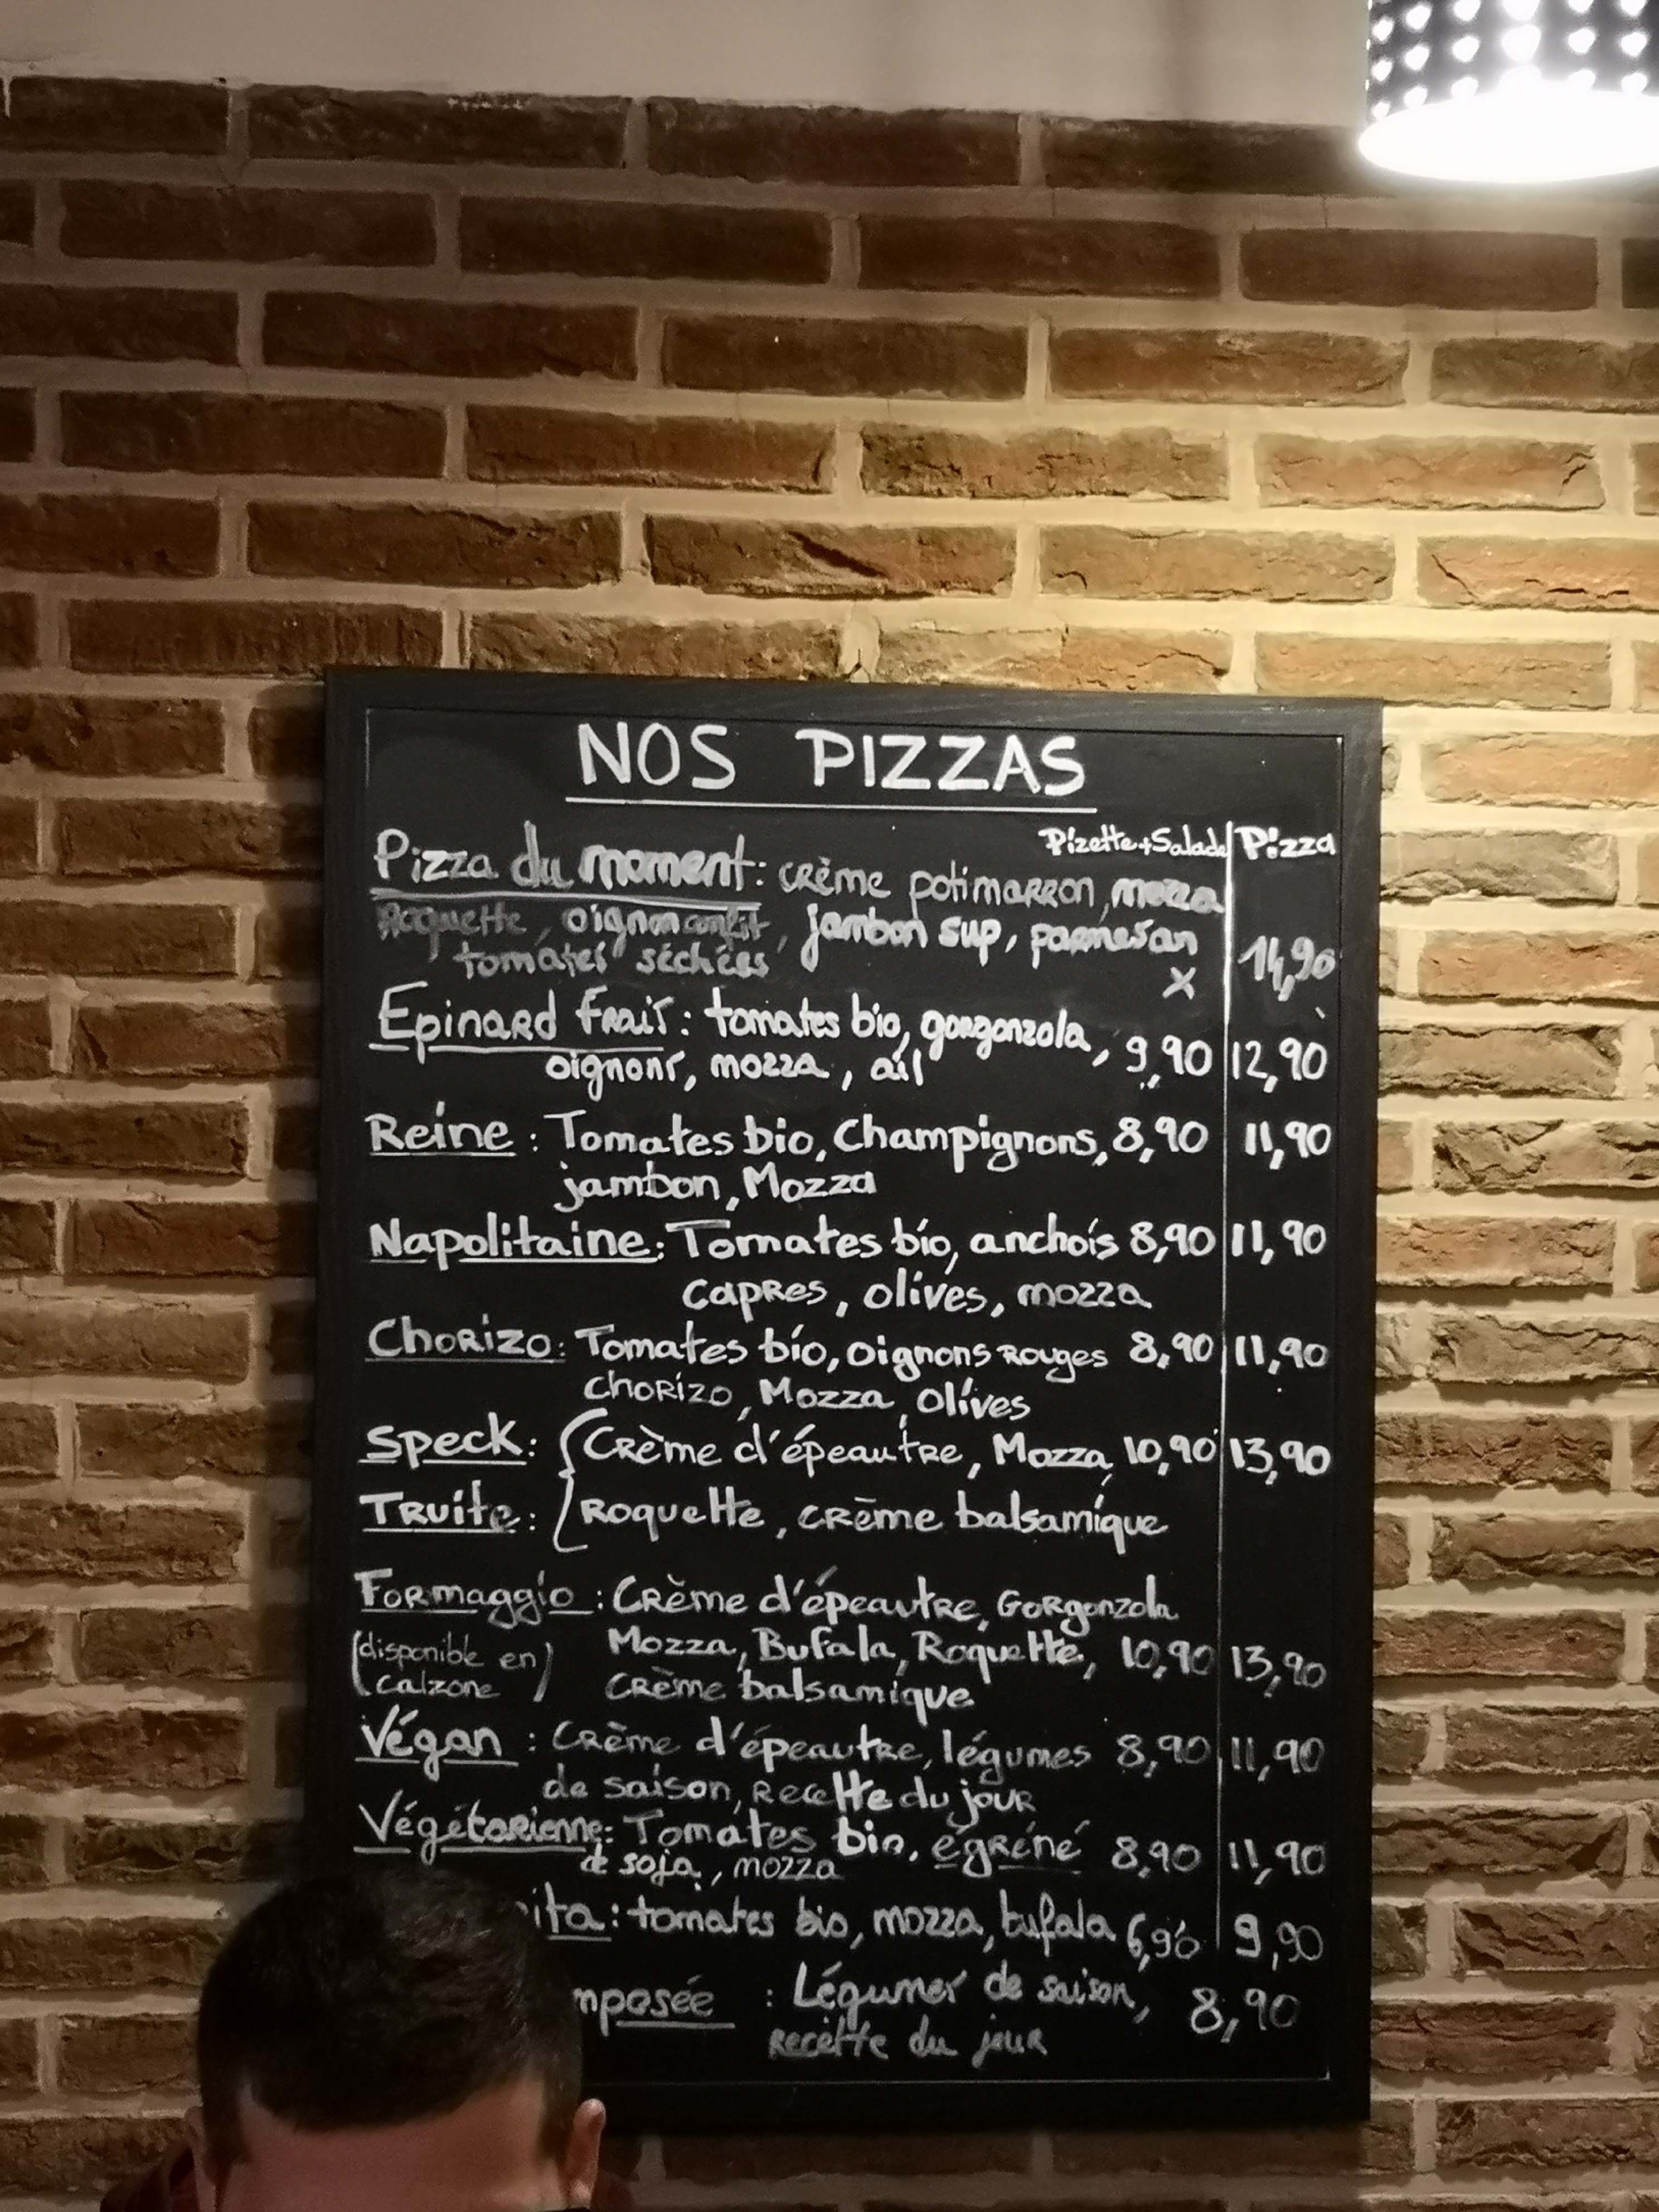 NOS PIZZAS
Pizette+Salade Pizza
Pizza du moment: crème potimarron, mozza
Roquette, oignon confit, jambon sup, parmesan
tomates séchées X 14,90
Epinard Frais: tomates bio, gorgonzola, 9,90 12,90
oignons, mozza, ail
Reine: Tomates bio, Champignons, 8,90 11,90
jambon, Mozza
Napolitaine: Tomates bio, anchois 8,90 11,90
capres, olives, mozza
Chorizo: Tomates bio, oignons Rouges 8,90 11,90
chorizo, Mozza, olives
Speck: Crème d'épeautre, Mozza, 10,90 13,90
Truite: Roquette, crème balsamique
Formaggio: Crème d'épeautre, Gorgonzola
(disponible en Mozza, Bufala, Roquette, 10,90 13,90
calzone) crème balsamique
Végan: Crème d'épeautre, légumes 8,90 11,90
de saison, Recette du jour
Végétarienne: Tomates bio, égréné 8,90 11,90
de soja, mozza
ita: tomates bio, mozza, bufala 6,90 9,90
mposée : Légumes de saison, 8,90
recette du jour